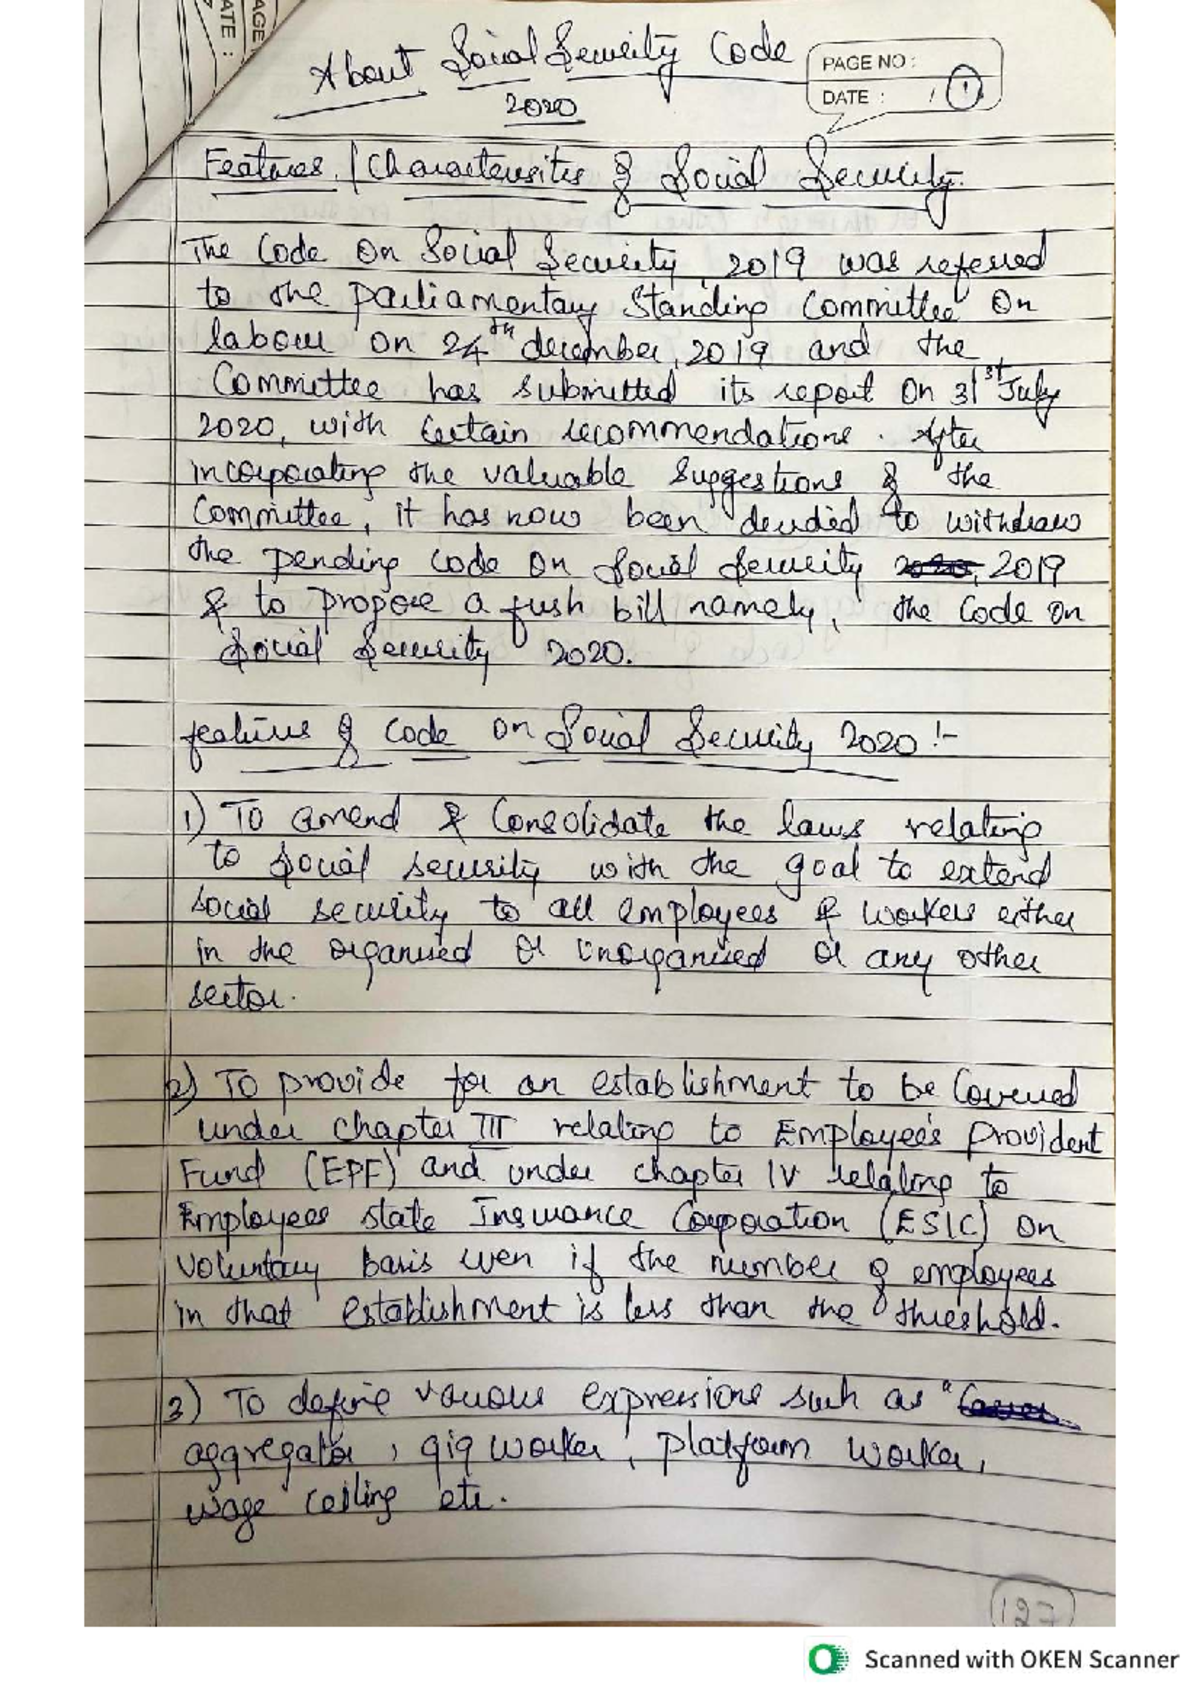 AGE
ATE :
About Social Security Code
2020
PAGE NO :
DATE : / 1
Features / Charactersites of Social Security.
The Code on Social Security, 2019 was referred
to the Parliamentary Standing Committee on
labour on 24th december, 2019 and the
Committee has submitted its report on 31st July
2020, with certain recommendations. After
incorporating the valuable suggestions of the
Committee, it has now been decided to withdraw
the pending code on Social Security 2020, 2019
& to propose a fresh bill namely, the Code on
Social Security 2020.
features of code on Social Security 2020 :-
1) To amend & Consolidate the laws relating
to social security with the goal to extend
social security to all employees & workers either
in the organised or unorganised or any other
sector.
2) To provide for an establishment to be Covered
under chapter III relating to Employee's Provident
Fund (EPF) and under chapter IV relating to
Employees state Insurance Corporation (ESIC) on
voluntary basis even if the number of employees
in that establishment is less than the threshold.
3) To define various expressions such as "
aggregator, gig worker, platform worker,
wage ceiling etc.
127
Scanned with OKEN Scanner